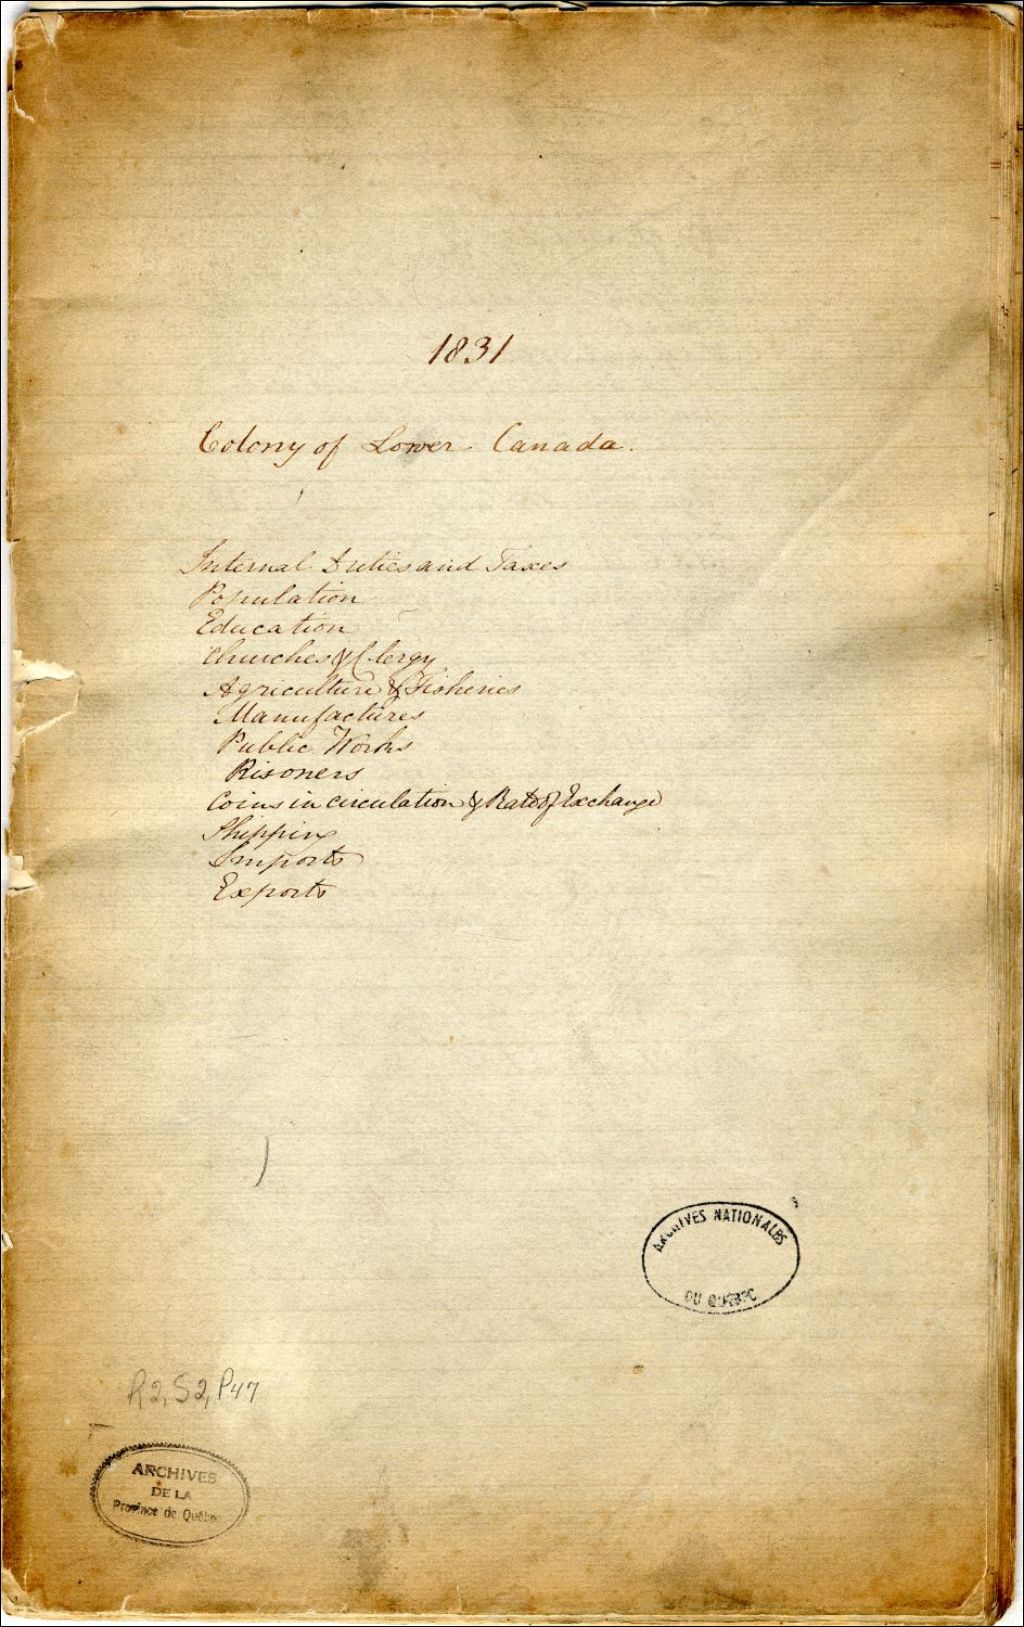 1831
Colony of Lower Canada.
Internal Duties and Taxes
Population
Education
Churches & Clergy
Agriculture & Fisheries
Manufactures
Public Works
Prisoners
Coins in circulation & Rate of Exchange
Shipping
Imports
Exports
ARCHIVES NATIONALES
DU QUÉBEC
R2, S2, P47
ARCHIVES
DE LA
Province de Québec